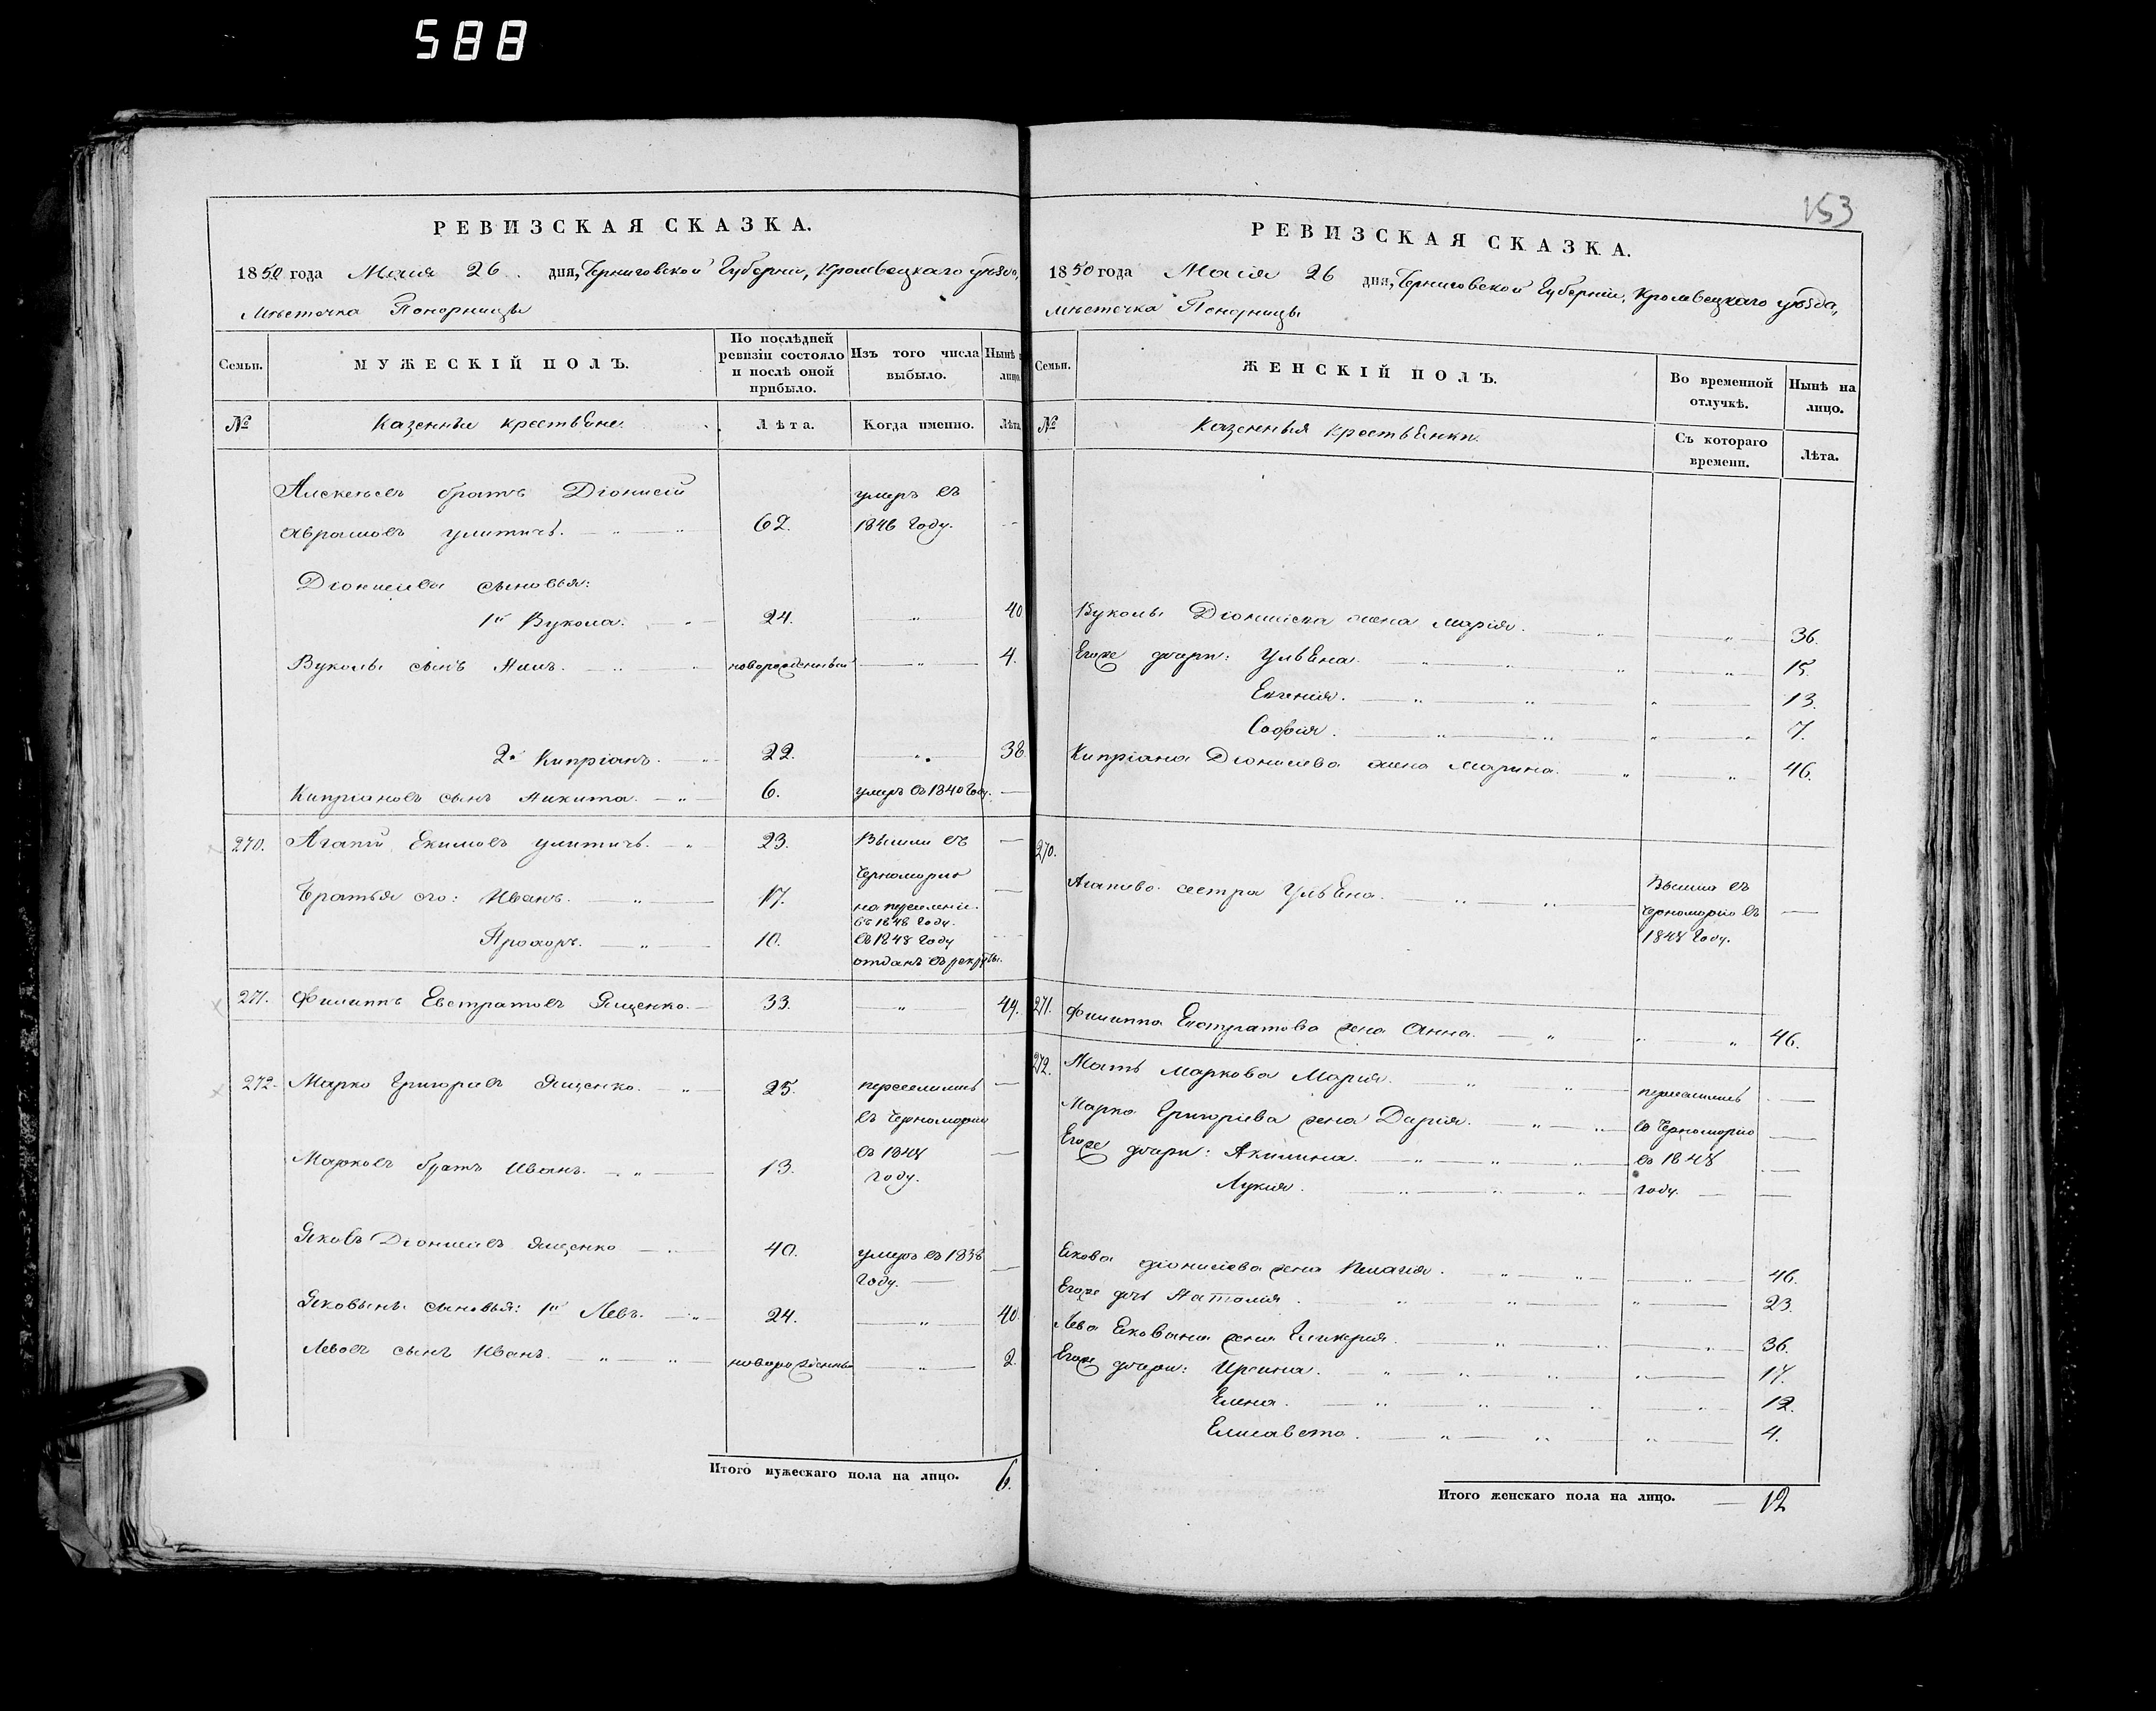 588
РЕВИЗСКАЯ СКАЗКА.
1850 года Маія 26 дня, Черниговской Губерніи, Кролевецкаго уѣзда,
мѣстечка Понорницы
Семьи.
МУЖЕСКІЙ ПОЛЪ.
По послѣдней ревизіи состояло и послѣ оной прибыло.
Изъ того числа выбыло.
Нынѣ лицо.
№
Казенные крестьяне.
Лѣта.
Когда именно.
Лѣта.
Алексѣевъ братъ Діонисій умеръ въ
Аврамовъ Улитичъ. 62. 1846 году.
Діонисіева сыновья:
1й Вукола. 24. 40
Вуколы сынъ новорожденный 4.
2й Кипріанъ. 22. 38
Кипріановъ сынъ Никита. 6. умеръ въ 1840 году.
270. Агапій Екимовъ Улитичъ. 23. Вышли въ
Черноморію
Братья его: Иванъ. 17. на переселеніе
въ 1848 году.
Прохоръ. 10. въ 1848 году
отданъ въ рекруты.
271. Филиппъ Евстратовъ Ященко. 33. 49.
272. Марко Григорьевъ Ященко. 25. переселились
въ Черноморію
въ 1848
Марковъ братъ Иванъ. 13. году.
Яковъ Діонисіевъ Ященко 40. умеръ въ 1838
году.
Яковины сыновья: 1й Левъ. 24. 40.
Левовъ сынъ Иванъ. новорожденный 2.
Итого мужескаго пола на лицо. 6.
153
РЕВИЗСКАЯ СКАЗКА.
1850 года Маія 26 дня, Черниговской Губерніи, Кролевецкаго уѣзда,
мѣстечка Понорницы
Семьи.
ЖЕНСКІЙ ПОЛЪ.
Во временной отлучкѣ.
Нынѣ на лицо.
№
Казенныя крестьянки.
Съ котораго времени.
Лѣта.
Вуколы Діонисіева жена Марія. 36.
Егоже дочери: Ульяна. 15.
Евгенія. 13.
Софія. 7.
Кипріана Діонисіева жена Марина. 46.
270.
Агапіева сестра Ульяна. Вышла въ
Черноморію въ
1848 году.
271. Филиппа Евстратова жена Анна. 46.
272. Мать Маркова Марія. переселились
Марка Григоріева жена Дарія. въ Черноморію
Егоже дочери: Акилина. въ 1848
Лукія. году.
Якова Діонисіева жена Пелагія. 46.
Егоже дочь Наталія. 23.
Лева Яковина жена Гликерія. 36.
Егоже дочери: Ирина. 17.
Елена. 12.
Елисавета. 4.
Итого женскаго пола на лицо. 12